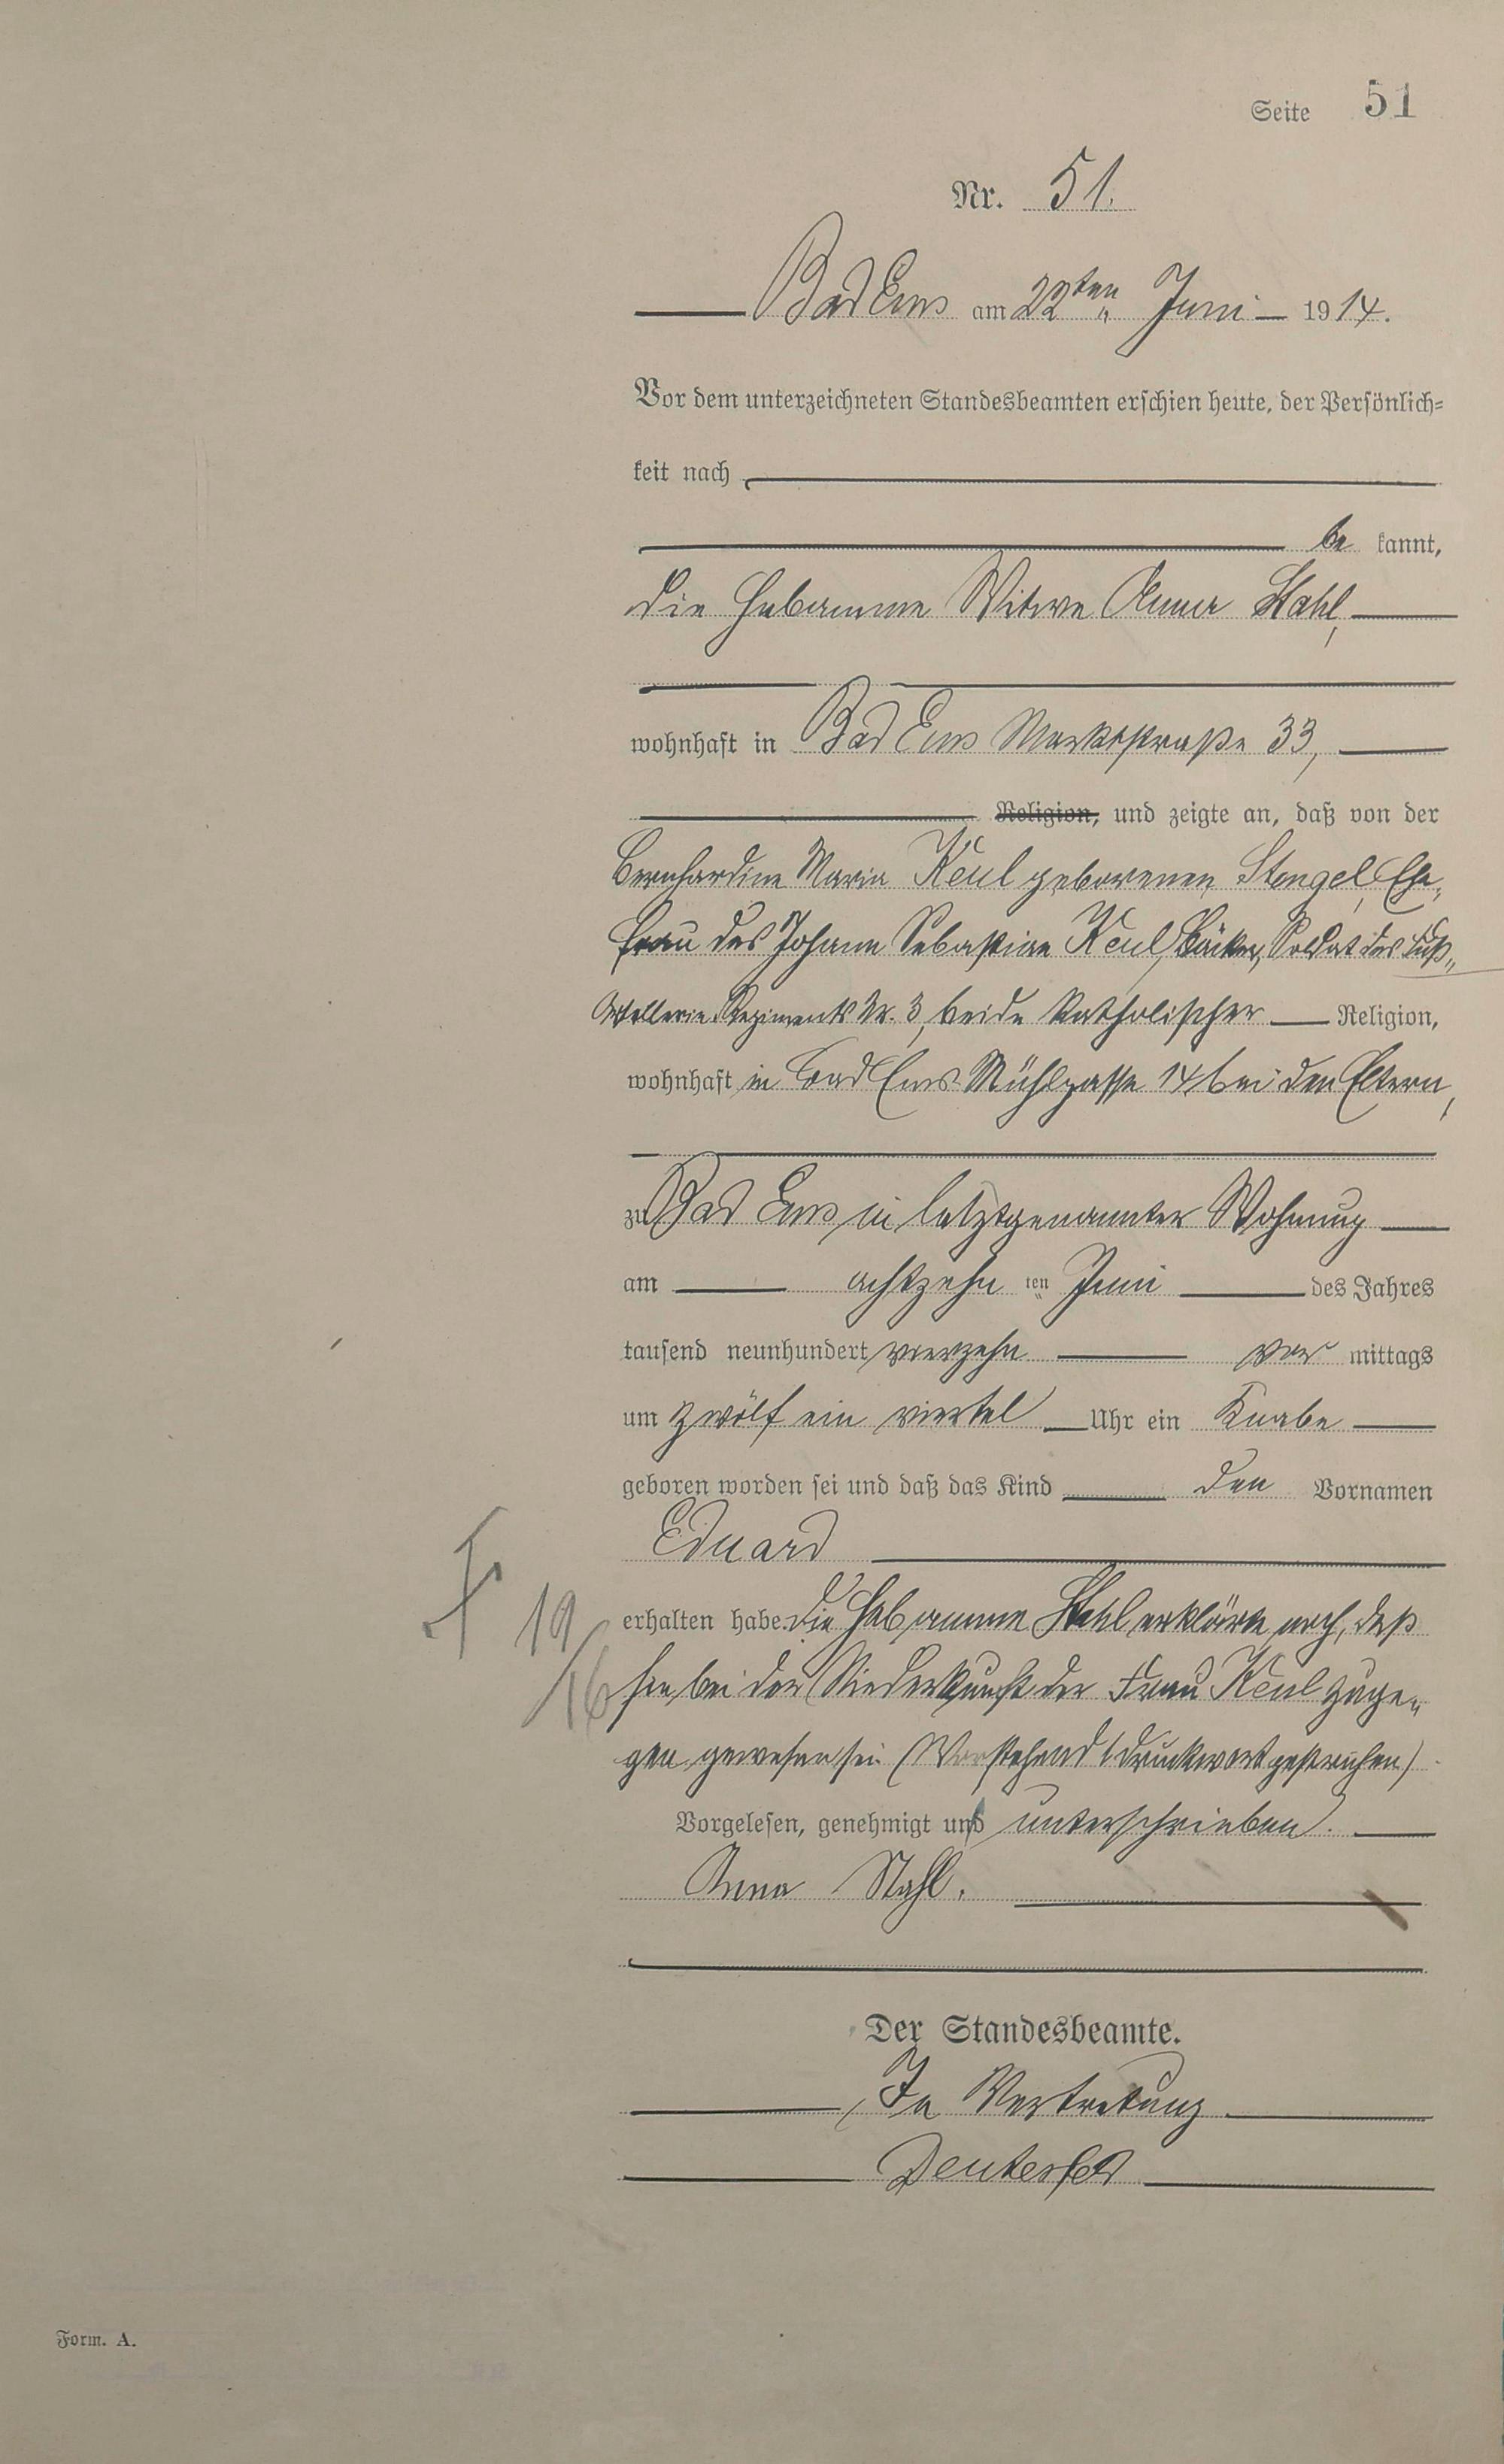 Seite 51
Nr. 51.
Bad Ems am 22ten Juni 1914.
Vor dem unterzeichneten Standesbeamten erschien heute, der Persönlich=
keit nach
be kannt,
die Hebamme Witwe Anna Stahl,
wohnhaft in Bad Ems Marktstraße 33,
Religion, und zeigte an, daß von der
Bernhardine Maria Keul geborenen Stengel, Ehe„
frau des Johann Sebastian Keul, Bäcker, Soldat des Fuß„
Artillerie-Regiments Nr. 3, beide katholischer Religion,
wohnhaft in Bad Ems Mühlgasse 14 bei den Eltern,
zu Bad Ems in letztgenannter Wohnung
am achtzehn ten Juni des Jahres
tausend neunhundert vierzehn vor mittags
um zwölf ein viertel Uhr ein Knabe
geboren worden sei und daß das Kind den Vornamen
Eduard
erhalten habe. Die Hebamme Stahl erklärte noch, daß
sie bei der Niederkunft der Frau Keul zuge„
gen gewesen sei. (Vorstehend 1 Druckwort gestrichen)
Vorgelesen, genehmigt und unterschrieben.
Anna Stahl.
Der Standesbeamte.
In Vertretung
19
16
Form. A.